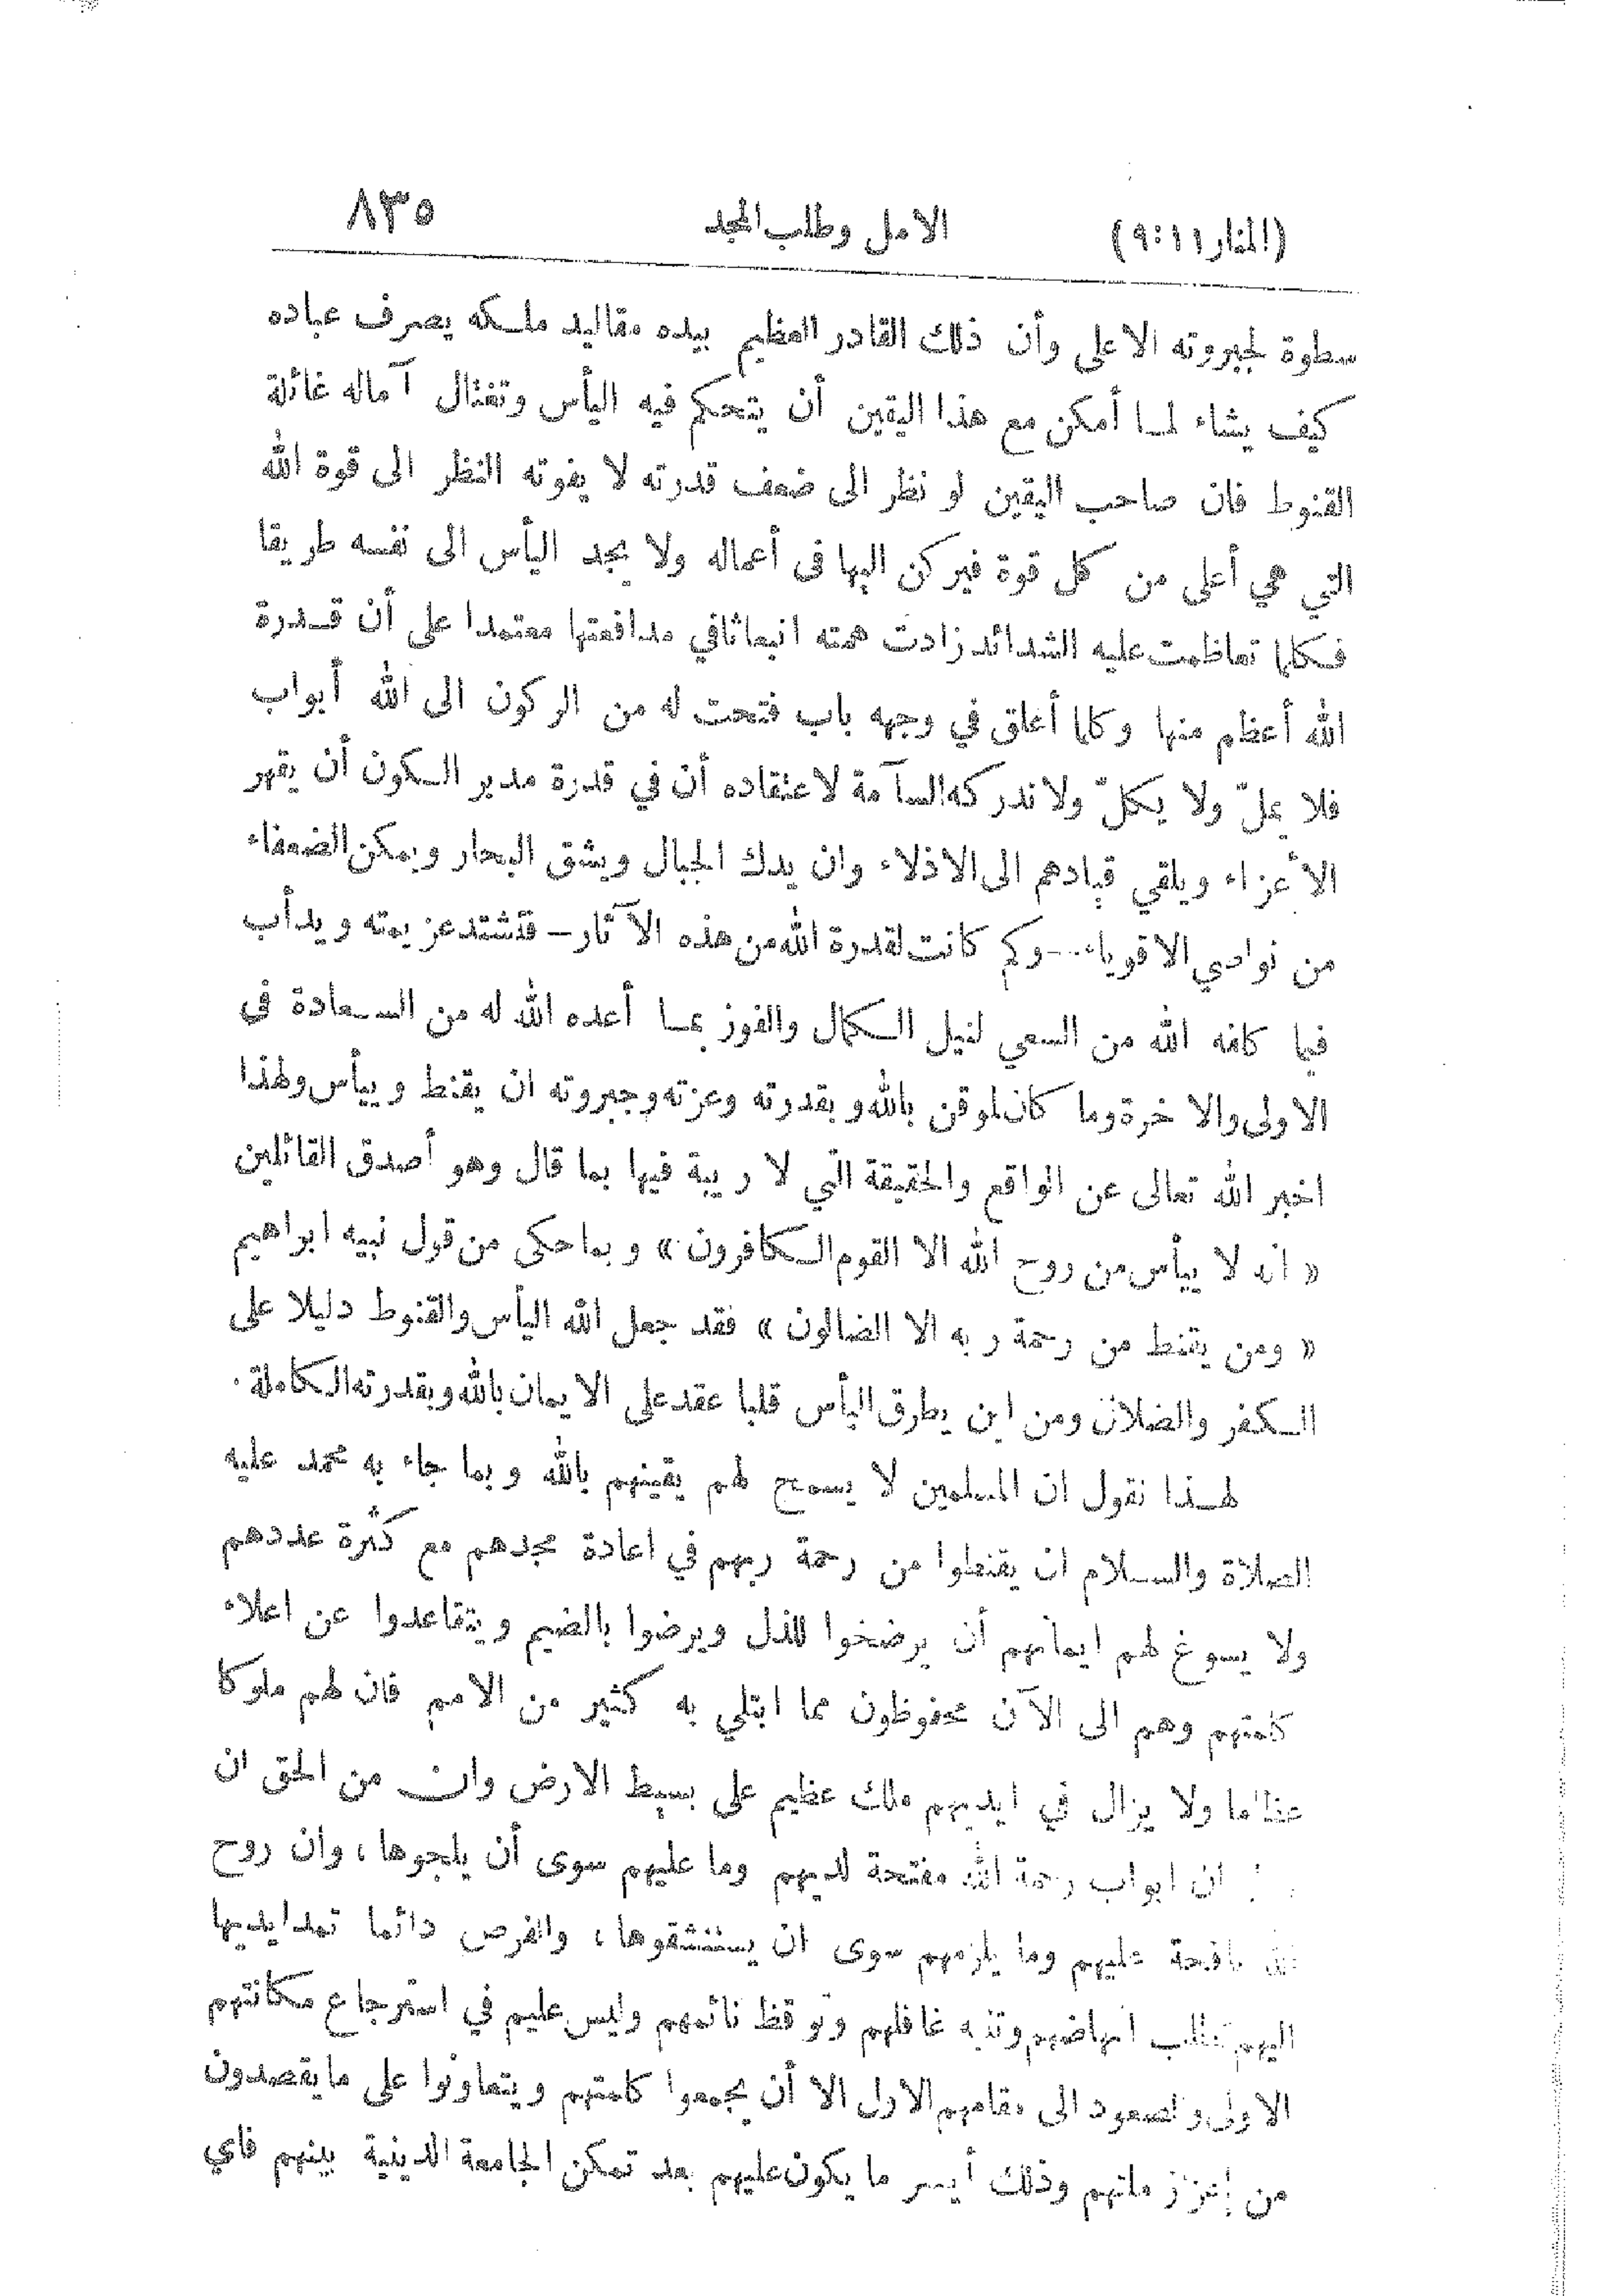 (المنار ١١:٩)
الامل وطلب المجد
٨٣٥
سطوة لجبروته الاعلى وأن ذلك القادر العظيم بيده مقاليد ملكه يصرف عباده
كيف يشاء لما أمكن مع هذا اليقين أن يتحكم فيه اليأس وتغتال آماله غائلة
القنوط فان صاحب اليقين لو نظر الى ضعف قدرته لا يفوته النظر الى قوة الله
التي هي أعلى من كل قوة فيركن اليها في أعماله ولا يجد اليأس الى نفسه طريقا
فكلما تعاظمت عليه الشدائد زادت همته انبعاثا في مدافعتها معتمدا على أن قدرة
الله أعظم منها وكلما أغلق في وجهه باب فتحت له من الركون الى الله أبواب
فلا يملّ ولا يكلّ ولا تدركه السآمة لاعتقاده أن في قدرة مدبر الكون أن يقهر
الأعزاء ويلقي قيادهم الى الاذلاء وان يدك الجبال ويشق البحار ويمكن الضعفاء
من نواصي الاقوياء - وكم كانت لقدرة الله من هذه الآثار - فتشتد عزيمته ويدأب
فيما كلفه الله من السعي لنيل الكمال والفوز بما أعده الله له من السعادة في
الاولى والآخرة وما كان لموقن بالله وبقدرته وعزته وجبروته ان يقنط وييأس ولهذا
اخبر الله تعالى عن الواقع والحقيقة التي لا ريبة فيها بما قال وهو أصدق القائلين
« انه لا ييأس من روح الله الا القوم الكافرون » وبما حكى من قول نبيه ابراهيم
« ومن يقنط من رحمة ربه الا الضالون » فقد جعل الله اليأس والقنوط دليلا على
الكفر والضلال ومن اين يطرق اليأس قلبا عقد على الايمان بالله وبقدرته الكاملة.
لهذا نقول ان المسلمين لا يسمح لهم يقينهم بالله وبما جاء به محمد عليه
الصلاة والسلام ان يقنطوا من رحمة ربهم في اعادة مجدهم مع كثرة عددهم
ولا يسوغ لهم ايمانهم أن يرضخوا للذل ويرضوا بالضيم ويتقاعدوا عن اعلاء
كلمتهم وهم الى الآن محفوظون مما ابتلي به كثير من الامم فان لهم ملوكا
عظاما ولا يزال في ايديهم ملك عظيم على بسيط الارض وان من الحق ان
ان ابواب رحمة الله مفتحة لديهم وما عليهم سوى أن يلجوها، وان روح
الله نافحة عليهم وما يلزمهم سوى ان يستنشقوها، والفرص دائما تمد ايديها
اليهم تطلب انهاضهم وتنبه غافلهم وتوقظ نائمهم وليس عليهم في استرجاع مكانتهم
الاولى والصعود الى مقامهم الاول الا أن يجمعوا كلمتهم ويتعاونوا على ما يقصدون
من إعزاز ملتهم وذلك أيسر ما يكون عليهم بعد تمكن الجامعة الدينية بينهم فاي